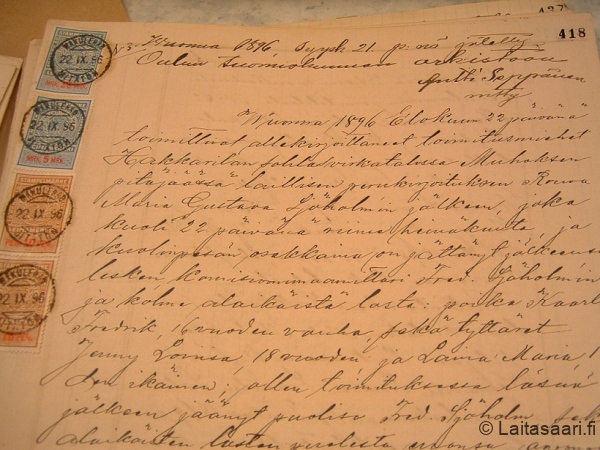 427
418
N:3. Wuonna 1896, Syysk 21. p:nä jätetty
Oulun tuomiokunnan arkistoon
Antti Tappräinen
Wuonna 1896 Elokuun 22 päivänä
toimittivat allekirjoittaneet toimitusmiehet
Hakkaritan sotilasvirkatalossa Muhoksen
pitäjässä laillisen perukirjoituksen Rouva
Maria Gustava Sjöholm'in jälkeen, joka
kuoli 22 päivänä viime heinäkuuta, ja
kuolinpesän osakkaina on jättänyt jälkeensä
lesken, komisionimaanmittari Fred. Sjöholm'in
ja kolme alaikäistä lasta: poika Kaarl
Fredrik, 16 vuoden vanha, sekä tyttäret
Jenny Lovisa, 18 vuoden ja Laura Maria 1
den ikäinen; ollen toimituksessa läsnä
jälkeen jäänyt puoliso Fred. Sjöholm sek
alaikäisten lasten puolesta
22 IX. 96
22 IX. 96
MRK. 5 MRK.
22 IX. 96
22 IX. 96
© Laitasaari.fi